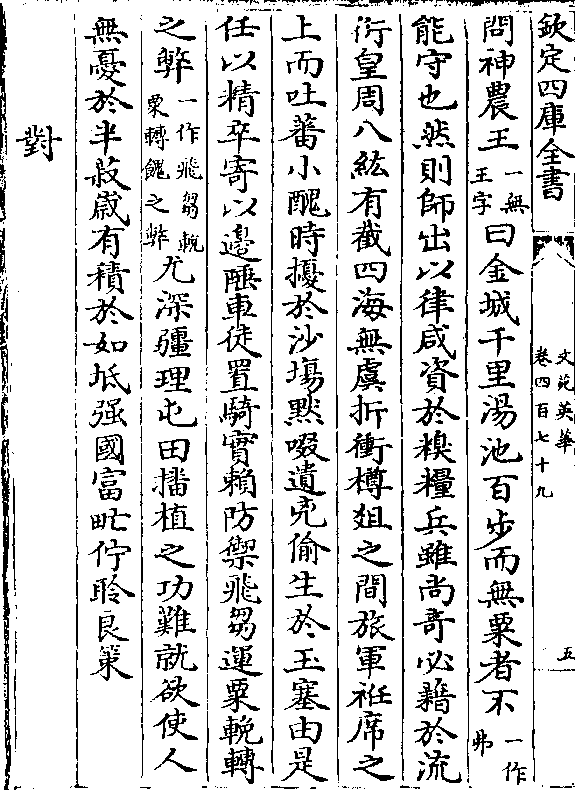 欽定四庫全書
文苑英華
卷四百七十九
五
問神農王一無王字曰金城千里湯池百步而無粟者不一作弗
能守也然則師出以律咸資於糗糧兵雖尚竒必藉於流
衍皇周八紘有截四海無虞折衝樽俎之間旅軍袵席之
上而吐蕃小醜時擾於沙塲黙啜遺兇偷生於玉塞由是
任以精卒寄以邊陲車徒置騎實賴防禦飛芻運粟輓轉
之弊一作飛芻輓粟轉餽之弊尤深疆理屯田播植之功難就欲使人
無憂於半菽嵗有積於如坻强國富甿佇聆良策
對